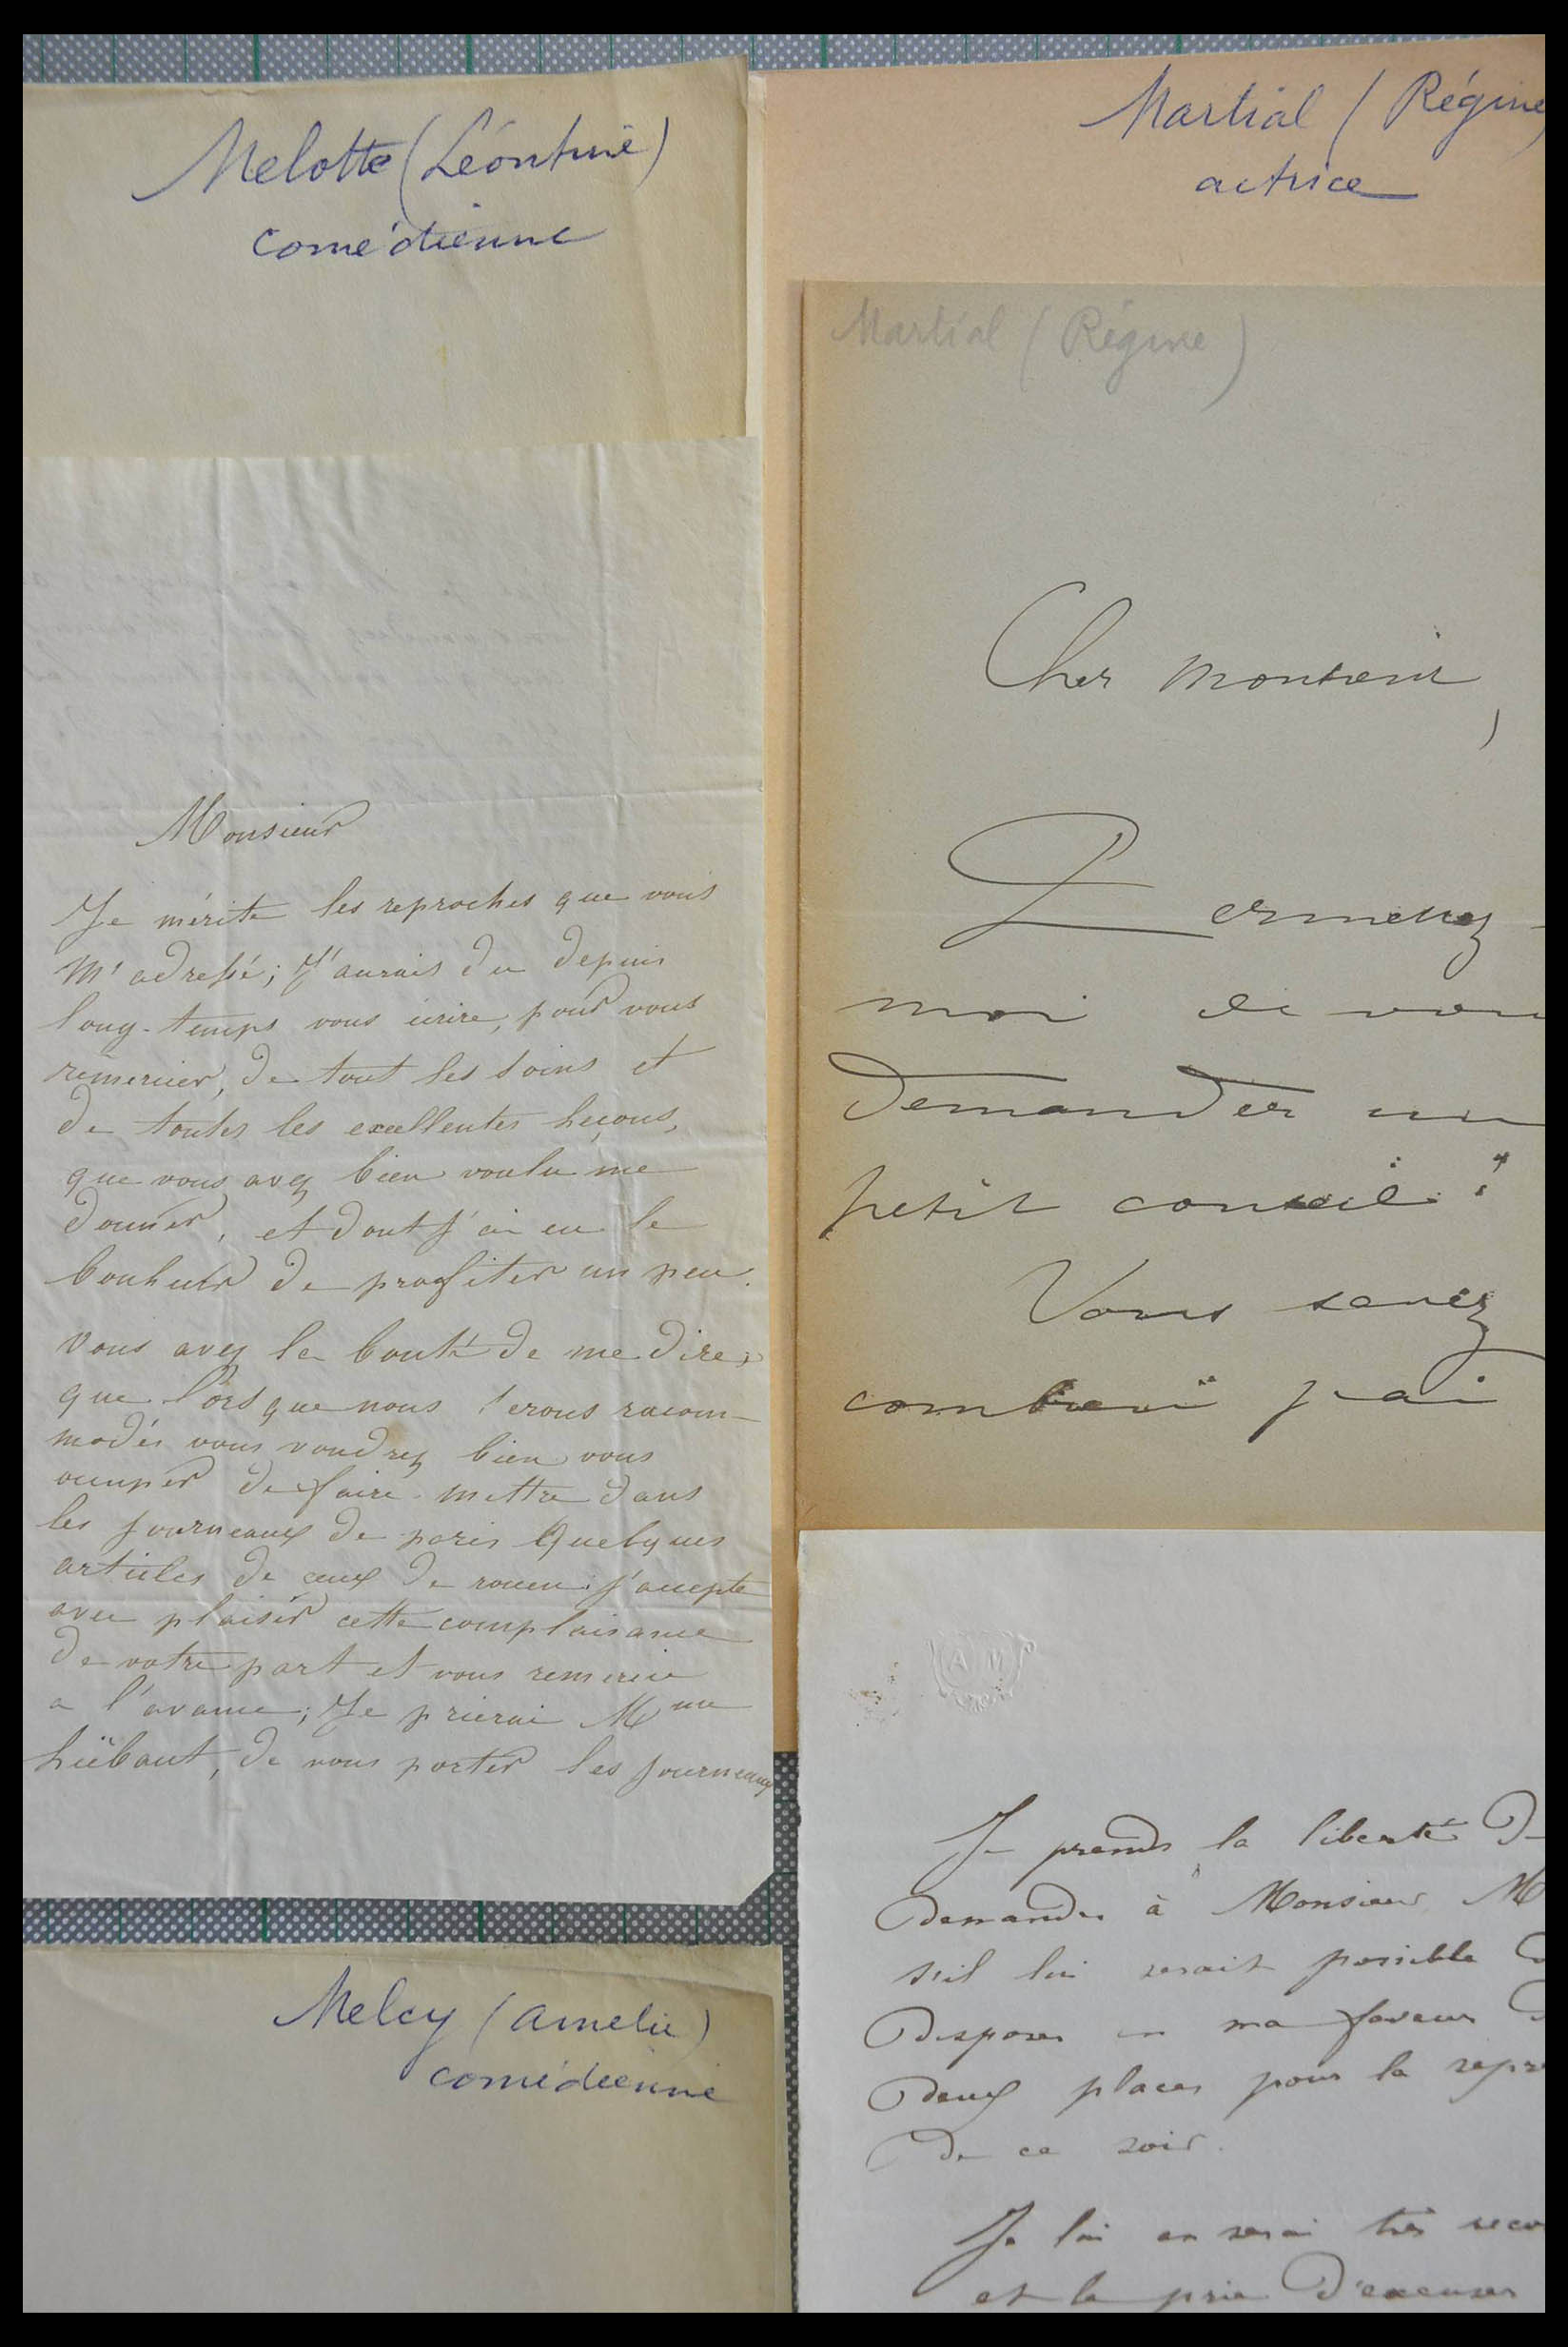 Melotte (Léontine)
comédienne
Monsieur
Je mérite les reproches que vous
m'adressé; J'aurais du depuis
long-temps vous écrire, pour vous
remercier, de tout les soins et
de toutes les excellentes leçons,
que vous avez bien voulu me
donner, et dont j'ai eu le
bonheur de profiter un peu.
vous avez la bonté de me dire,
que lorsque nous serons racom-
modés vous voudrez bien vous
occuper de faire mettre dans
les journeaux de paris quelques
articles de ceux de rouen; j'accepte
avec plaisir cette complaisance
de votre part et vous remercie
a l'avance; Je prierai Mme
hüebaut, de vous porter les journeaux
Melcy (amelie)
comédienne
Martial (Régine
actrice
Martial (Régine)
Cher monsieur,
Permettez-
moi de vous
demander un
petit conseil:
Vous savez
combien j'ai
A M
Je prends la liberté de
demander à Monsieur M
s'il lui serait possible
disposer en ma faveur
deux places pour la repré
de ce soir.
Je lui en serai très reco
et le prie d'excuser